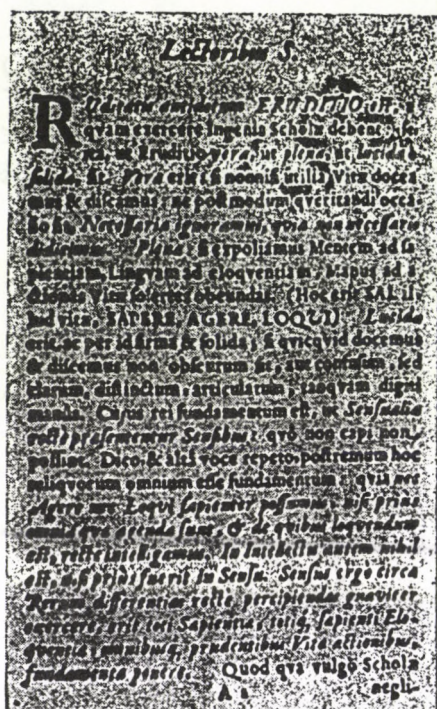 Lectoribus S.
RUditatis antidotum ERUDITIO est,
qvam exercere Ingenia Scholæ debent:
ut Eruditio vera, ut plena, ut lucida &
solida sit. Vera erit si nonnisi utilia Vitæ docea
mus & discamus: ne postmodum qveritandi occa
sio sit, Necessaria ignoramus, qvia non necessaria
didicimus. Plena, si expoliamus Mentem ad sa
pientiam, Lingvam ad eloqventiam, Manus ad a
ctiones Vitæ solerter obeundas. (Hoc erit SAL il
lud vitæ, SAPERE, AGERE, LOQUI) Lucida
erit, ac per id firma & solida, si qvicqvid docemus
& discemus non obscurum sit, aut confusum, sed
clarum, distinctum, articulatum, tanqvam digiti
manûs. Cujus rei fundamentum est, ut Sensualia
rectè præsententur Sensibus: qvò non capi non
possint. Dico & altâ voce repeto, postremum hoc
reliqvorum omnium esse fundamentum: qvia nec
Agere nec Loqui sapienter possumus, nisi prius
omnia qvæ agenda sunt, & de qvibus loqvendum
est, rectè intelligamus. In Intellectu autem nihil
est, nisi priùs fuerit in Sensu. Sensus ergo circa
Rerum differentias rectè percipiendas gnaviter
exercere, erit toti Sapientiæ, totiq, sapienti Elo
qventiæ, omnibusq, prudentibus Vitæ actionibus,
fundamenta ponere. Quod qva vulgo Scholæ
A 2 negli-